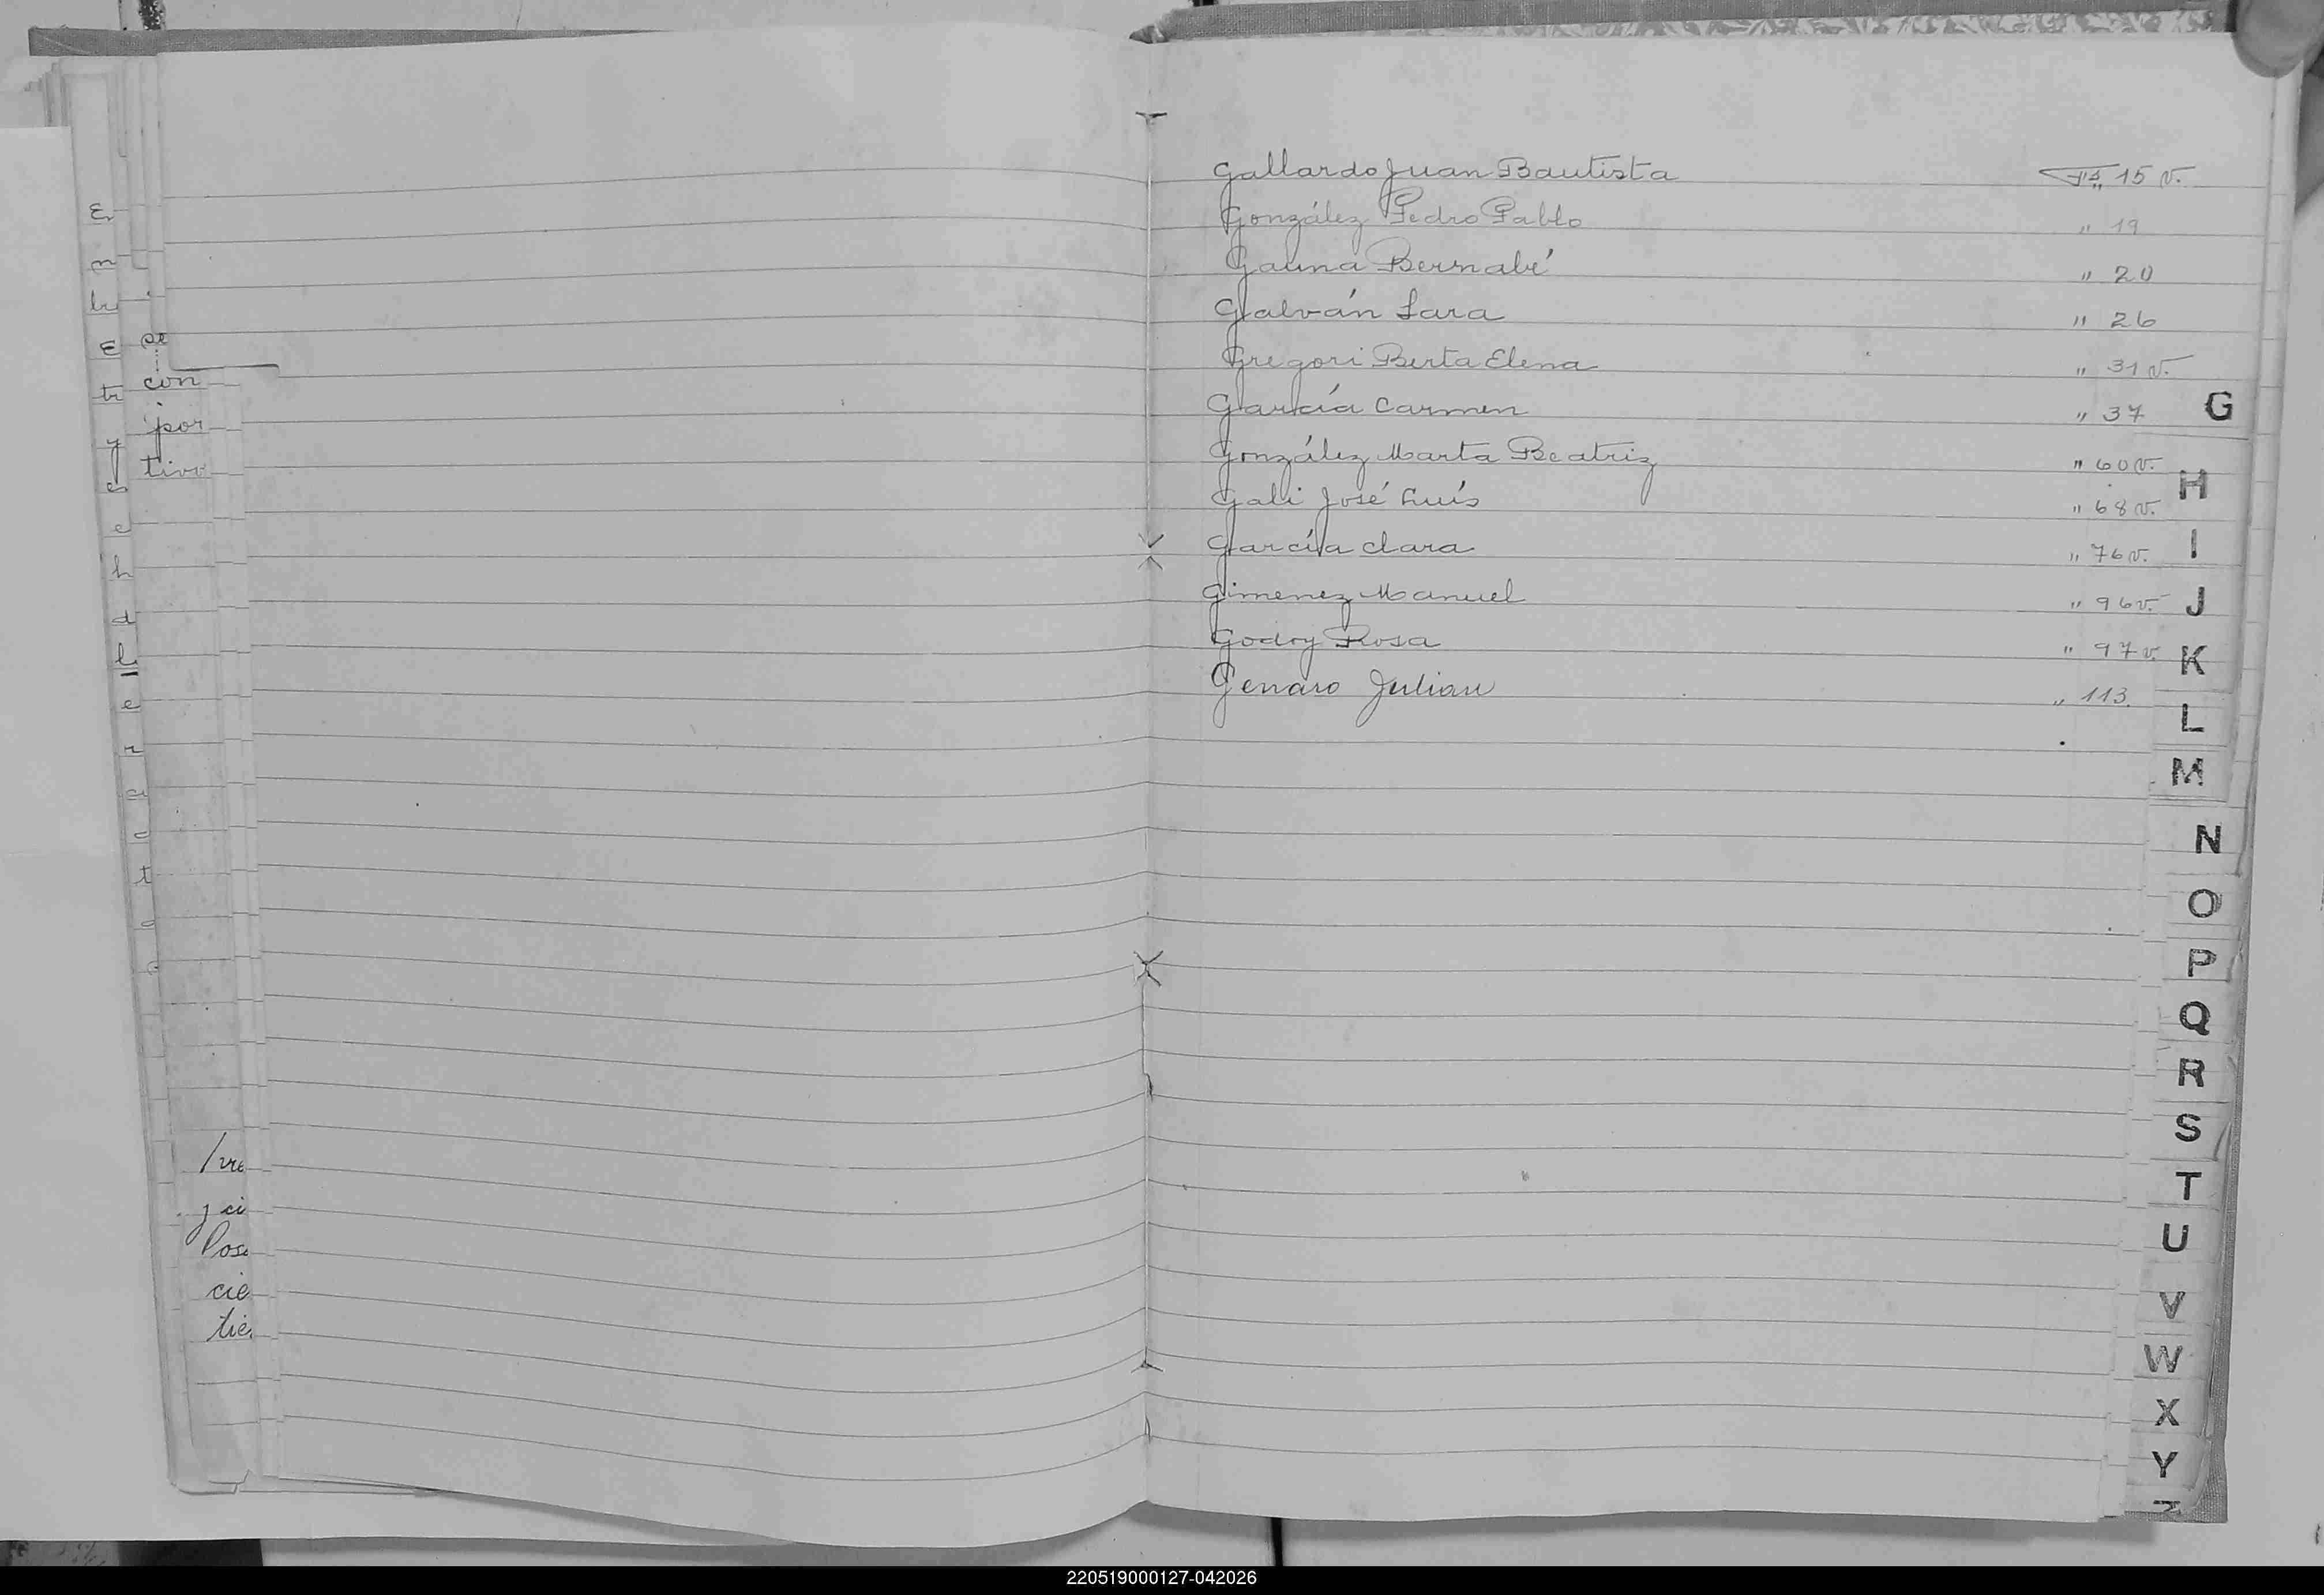 Gallardo Juan Bautista Fs. 15 v.
González Pedro Pablo " 19
Gauna Bernabé " 20
Galván Sara " 26
Gregori Berta Elena " 31 v.
García Carmen " 37
González Marta Beatriz " 60 v.
Gali José Luís " 68 v.
García Clara " 76 v.
Gimenez Manuel " 96 v.
Godoy Rosa " 97 v.
Genaro Julian " 113.
G
H
I
J
K
L
M
N
O
P
Q
R
S
T
U
V
W
X
Y
con
por
tivo
cie
tie
220519000127-042026